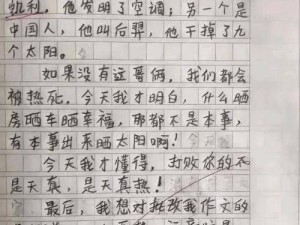 凯利。他发明了空调；另一个是
中国人，他叫后羿，他干掉了九
个太阳。
如果没有这哥俩，我们都会
被热死。今天我才明白，什么晒
房晒车晒幸福，那都不是本事，
有本事出来晒太阳啊！
今天我才懂得，打败你的不
是天真，是天真热！
最后，我想对批改我作文的